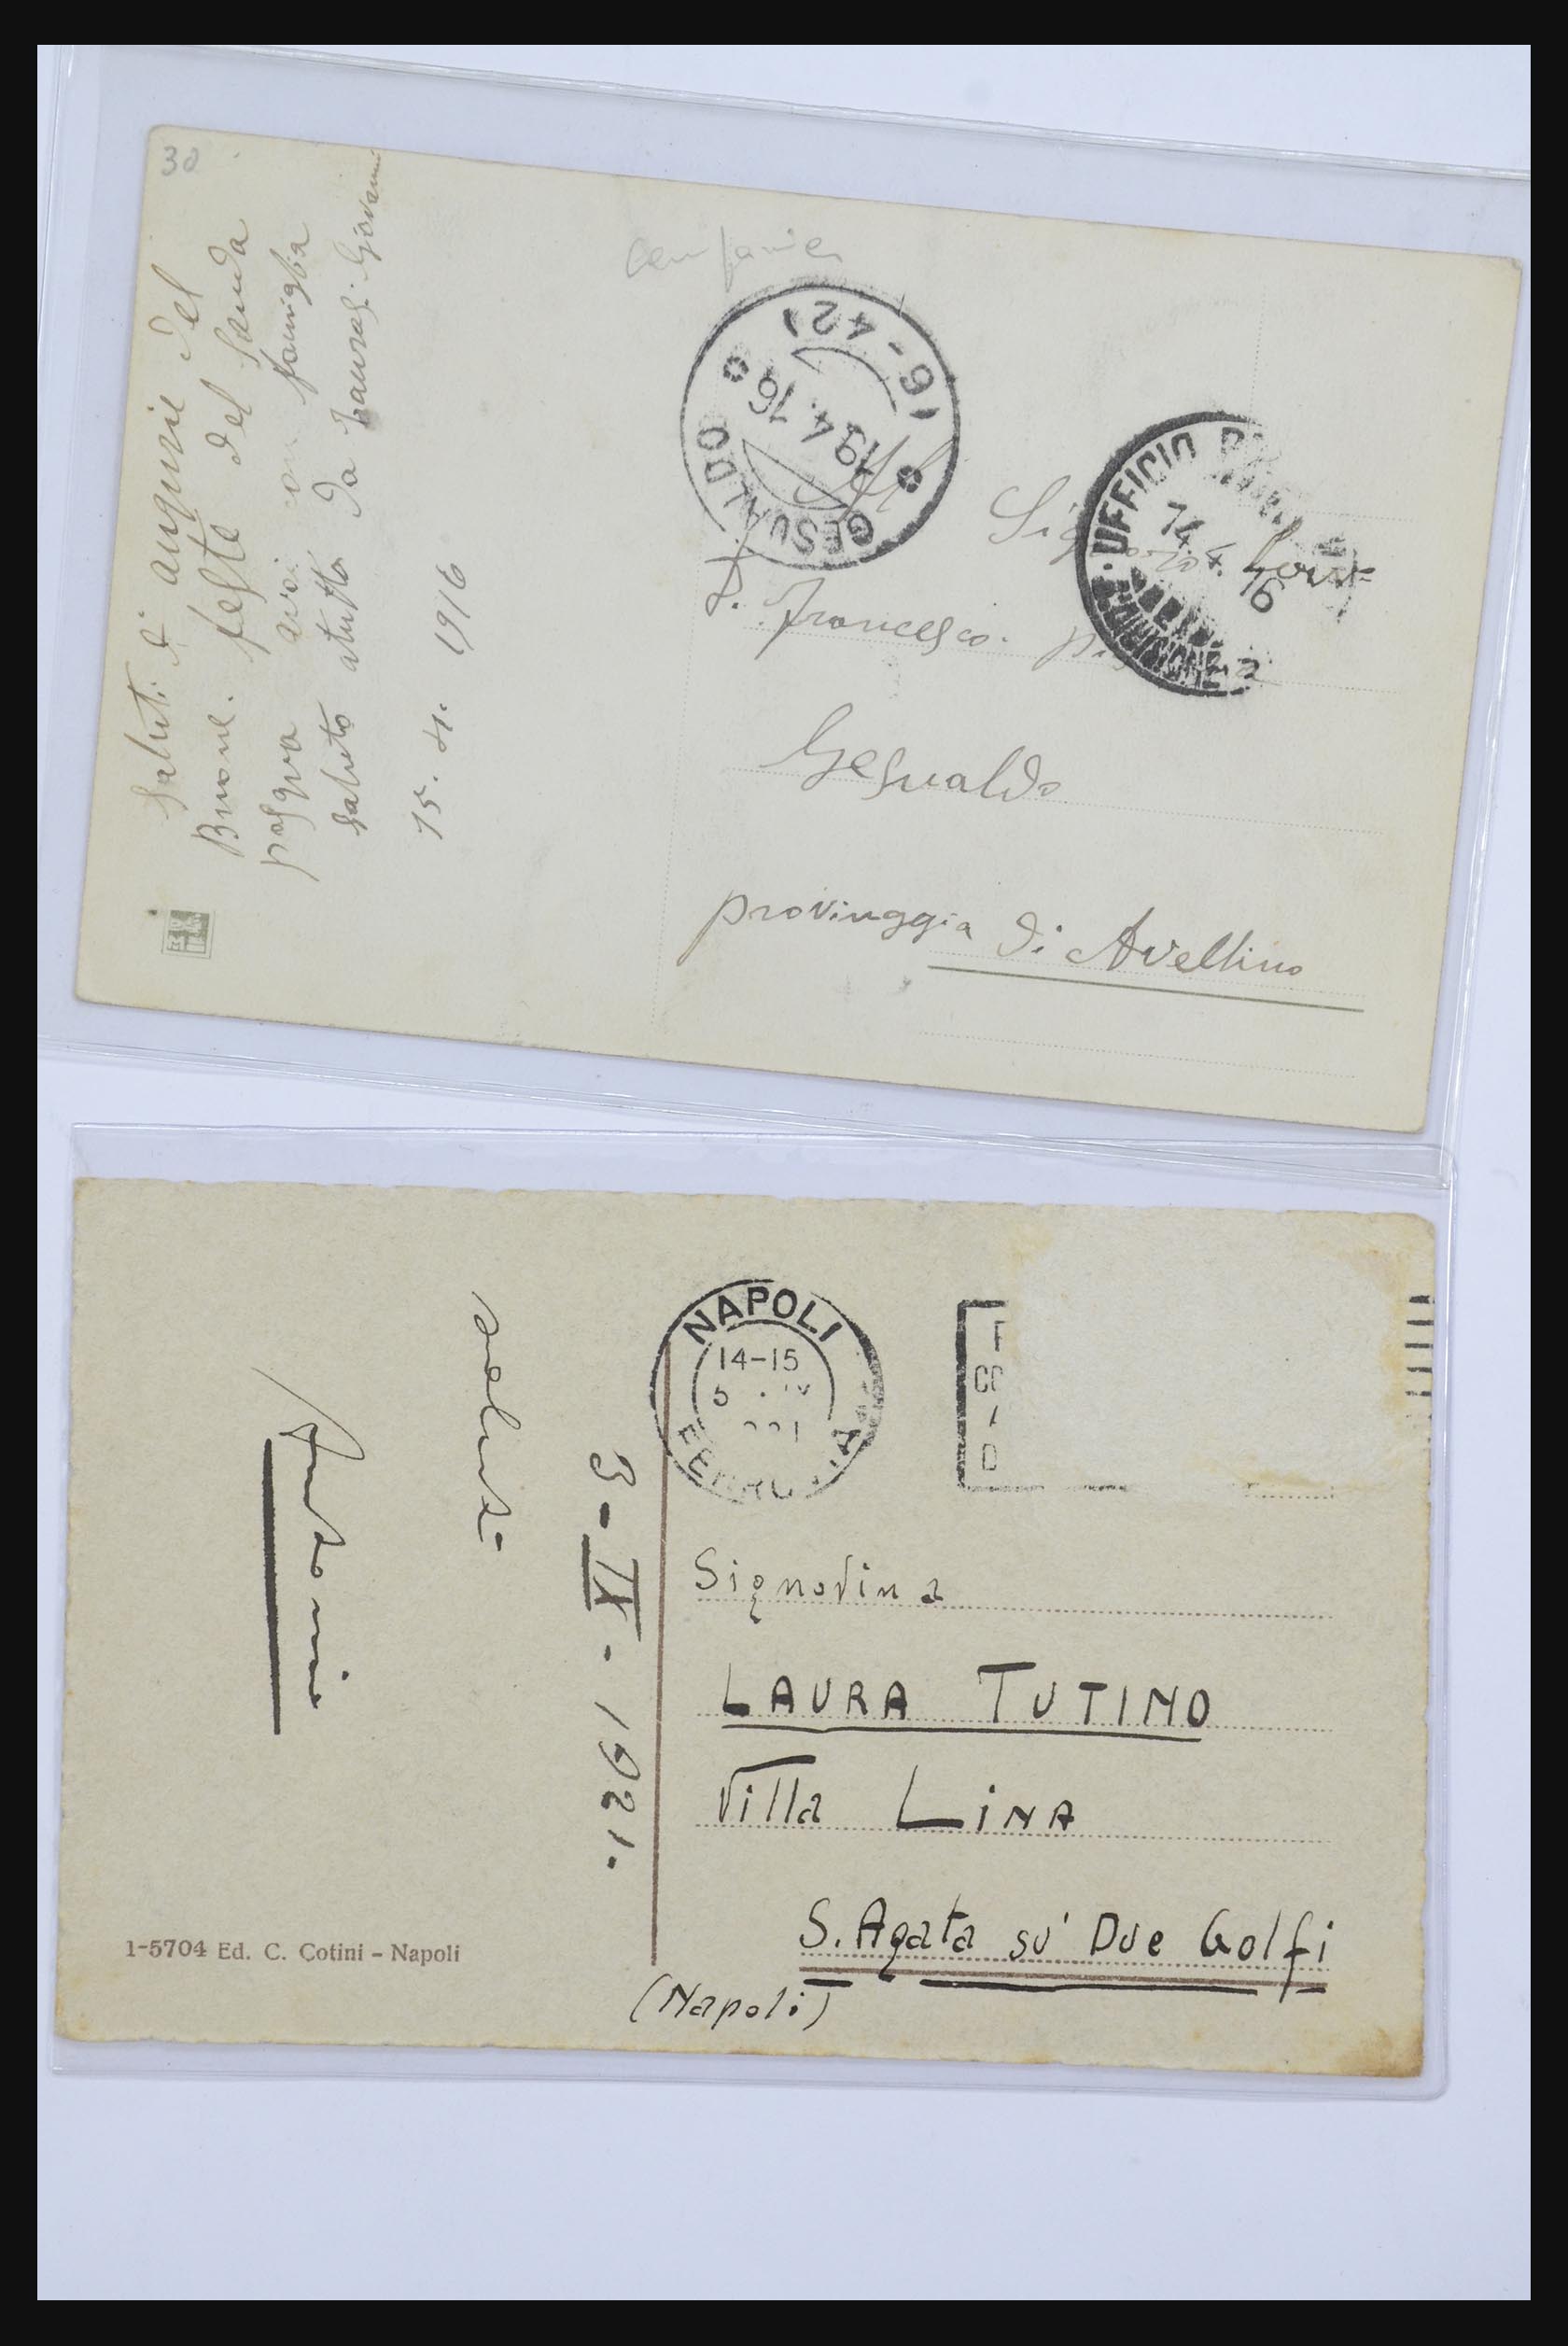 30
Saluti di augurie del
Buone feste del Santa
pasqua avoi famiglia
saluto atutto da Giovanni
15. 4. 1916
GESUALDO
19 4. 16
(6 - 42)
UFFICIO
14 4. 16
Al
D. Francesco
Gesualdo
provinggia di Avellino
NAPOLI
14-15
saluti
Antonio
3-IX-1921.
Signorina
LAURA TUTINO
Villa LINA
S. Agata su' Due Golfi
(Napoli)
1-5704 Ed. C. Cotini - Napoli